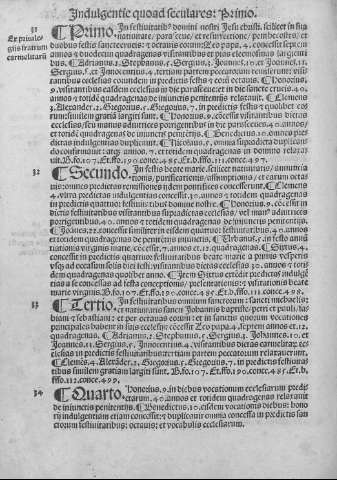 Indulgentie quoad seculares: Primo.
31
Ex priuile
giis fratrum
carmelitarum
Primo. In festiuitatibus domini nostri Jesu christi. scilicet in sua
natiuitate, parasceue/ et in resurrectione, penthecostes, et
duobus festis sancte crucis: et octauis eorum Leo papa.4. concessit septem
annos et duodecim quadragenas visitantibus et pias elemosinas largien
tibus. Adrianus.2. Stephanus.5. Sergius.3. Joannes.10. et Joannes.11.
Sergius.5. et Innocentius.4. tertiam partem peccatorum remiserunt: visi-
tantibus ecclesias eorundem in predictis festis et eorum octauis. Honorius.
9. visitantibus dictas ecclesias in die parasceue: et in die sancte crucis.40.
annos et totidem quadragenas de iniunctis penitentiis relaxauit. Clemens
4. Alexander.2. Gregorius.5. Gregorius.7. in predictis festis et qualibet eo
rum similem gratiam largiti sunt. Honorius.9. concessit visitantibus dictas
ecclesias seu manus adiutrices porrigentibus in dictis festis.40. annos/
et totidem quadragenas de iniunctis penitentiis. Benedictus.10. omnes pre
dictas indulgentias duplicauit. Nicolaus.5. omnia supradicta duplicans
de
nouo: annos. 7. et totidem quadragenas in domino relaxa-
uit. B. fo.107. Et.ffo.190. conce.485. Et.b.fffo.111. conce.497.
32
Secundo. In festis beate marie. scilicet natiuitatis/ annuncia
tionis, purificationis, assumptionis/ et earum octa
uis: omnes predictas remissiones iidem pontifices concesserunt. Clemens
4. vltra predictas indulgentias concessit.10. annos et totidem quadragenas
in predictis quatuor festiuitatibus domine nostre. Honorius.9. concessit in
dictis festiuitatibus visitantibus supradictas ecclesias/ vel manus adiutrices
porrigentibus.40. annos et totidem quadragenas de iniunctis penitentiis.
Joannes.22. concessit similiter in eisdem quatuor festiuitatibus.40. annos
et totidem quadragenas de penitentiis iniunctis. Urbanus.5. in festo annun
tiationis virginis marie, concessit.7. annos et.12. quadragenas. Sixtus.4.
concessit in predictis quatuor festiuitatibus beate marie a primis vesperis
vsque ad occasum solis diei festi: visitantibus dictas ecclesias.50. annos et toti-
dem quadragenas qualibet anno. Item Sixtus extendit predictas indulgen
tias a se concessas ad festa conceptionis/ presentationis: et visitationis beate
marie virginis. B.fo.107. Et.ffo.190. conce.485. Et.b.fffo.111. conce.498.
33
Tertio. In festiuitatibus omnium sanctorum: sancti michaelis:
et natiuitatis sancti Johannis baptiste/ petri et pauli, fa-
biani et sebastiani: et per octauas eorum: et in sanctis quorum vocationes
principales habent in suis ecclesiis: concessit Leo papa.4. septem annos et.12.
quadragenas. Adrianus.2. Stephanus.5. Sergius.3. Johannes.10. et
Joannes.11. Sergius.5. Innocentius.4. visitantibus dictas carmelitarum ec
clesias in predictis festiuitatibus tertiam partem peccatorum relaxauerunt.
Clemens.4. Alexander.2. Gregorius.5. Gregorius.7. in predictis festiuita
tibus similem gratiam largiti sunt. B.fo.107. Et.ffo.190. conce.485. Et.b.
fffo.111. conce.499.
34
Quarto. Honorius.9. in diebus vocationum ecclesiarum predi-
ctarum.40. annos et totidem quadragenas
de iniunctis penitentiis. Benedictus.10. eisdem vocationis diebus: bono
rum indulgentiam etiam concessit: et duplicauit omnia concessa in predictis san
ctorum festiuitatibus: octauis: et vocabulis ecclesiarum.